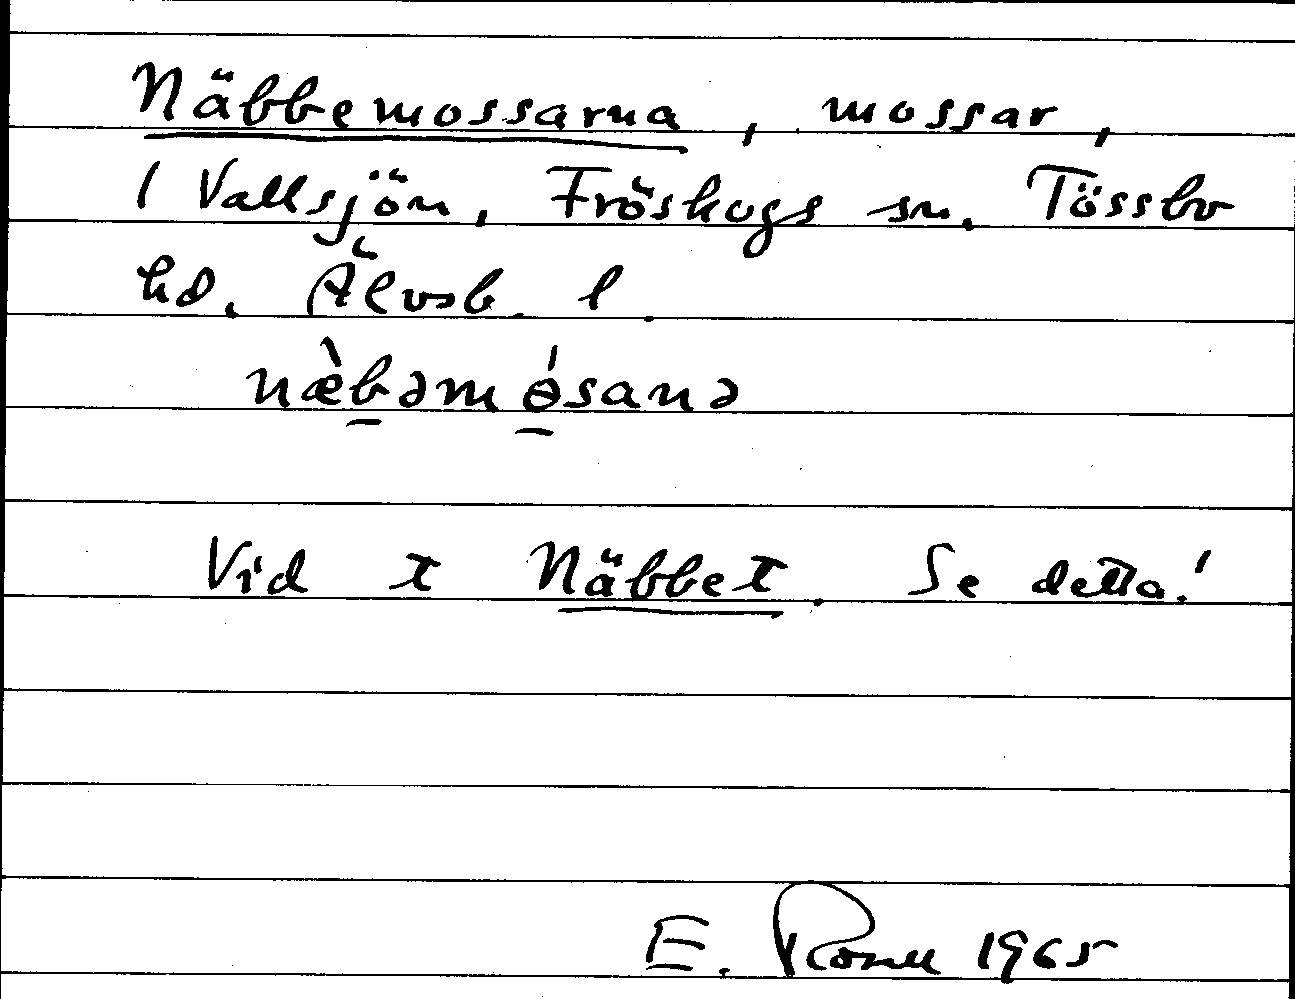 Näbbemossarna, mossar,
i Vallsjön, Fröskogs sn. Tössbo
hd. Älvsb. l.
næ̀bəmɵ́sanə
Vid t Näbbet. Se detta!
E. 1965